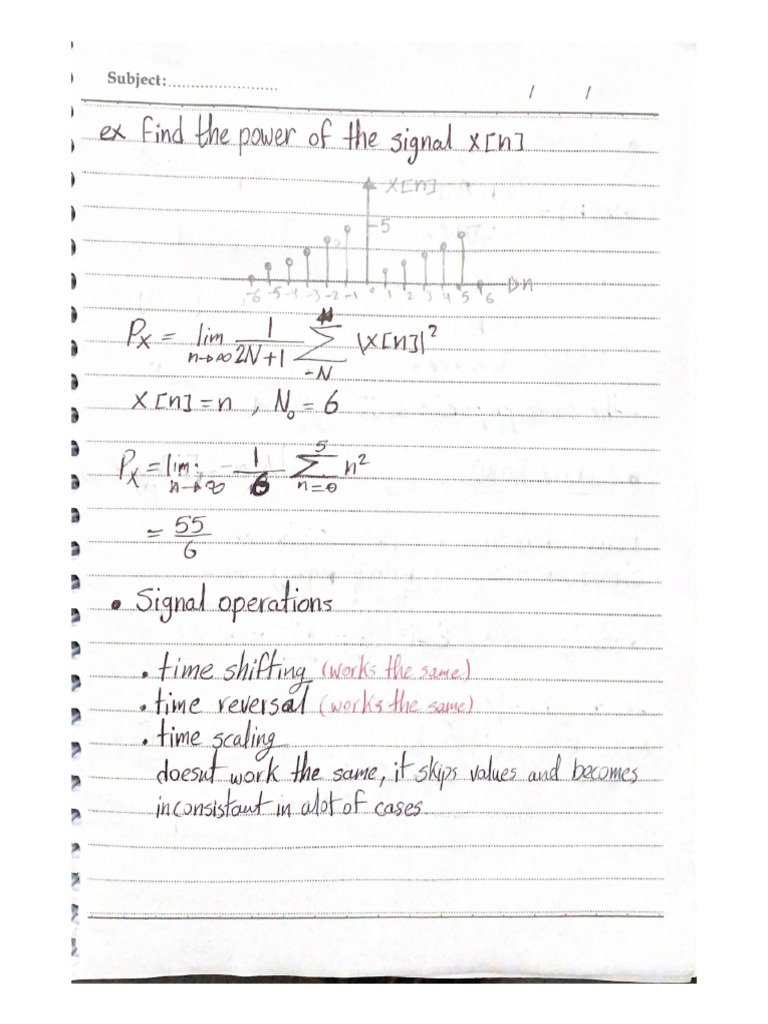 Subject:........................
/ /
ex Find the power of the signal x[n]
x[n]
5
-6 -5 -4 -3 -2 -1 0 1 2 3 4 5 6 n
Px = lim n→∞ 1/2N+1 Σ N -N |x[n]|²
x[n] = n , N₀ = 6
Px = lim n→∞ 1/6 Σ 5 n=0 n²
= 55/6
• Signal operations
• time shifting (works the same)
• time reversal (works the same)
• time scaling
doesnt work the same, it skips values and becomes
inconsistant in alot of cases.